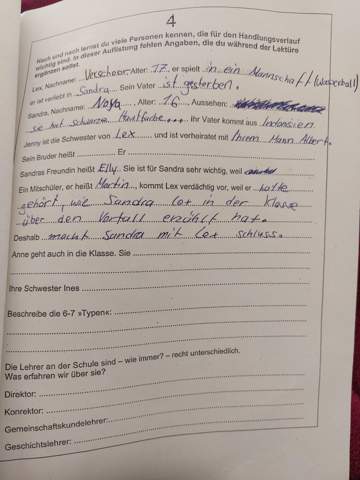 4
Nach und nach lernst du viele Personen kennen, die für den Handlungsverlauf
wichtig sind. In dieser Auflistung fehlen Angaben, die du während der Lektüre
ergänzen sollst.
Lex, Nachname: Verschoor, Alter: 17, er spielt in ein Mannschaft (Wasserball)
er ist verliebt in Sandra. Sein Vater ist gestorben.
Sandra, Nachname: Alter: 16. Aussehen:
sie hat schwarze Hautfarbe... Ihr Vater kommt aus Indonsien
Jenny ist die Schwester von Lex und ist verheiratet mit Ihrem Mann Albert.
Sein Bruder heißt Er
Sandras Freundin heißt Elly. Sie ist für Sandra sehr wichtig, weil
Ein Mitschüler, er heißt Martin, kommt Lex verdächtig vor, weil er hatte
gehört, wie Sandra Lex in der Klasse
über den Vorfall erzählt hat.
Deshalb macht Sandra mit Lex schluss.
Anne geht auch in die Klasse. Sie
Ihre Schwester Ines
Beschreibe die 6-7 »Typen«:
Die Lehrer an der Schule sind – wie immer? – recht unterschiedlich.
Was erfahren wir über sie?
Direktor:
Konrektor:
Gemeinschaftskundelehrer:
Geschichtslehrer: